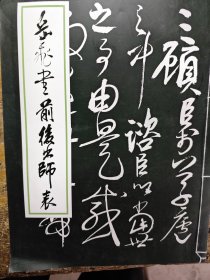 三顧臣於草廬
之中諮臣以當世
之事由是感
岳飛書前後出師表